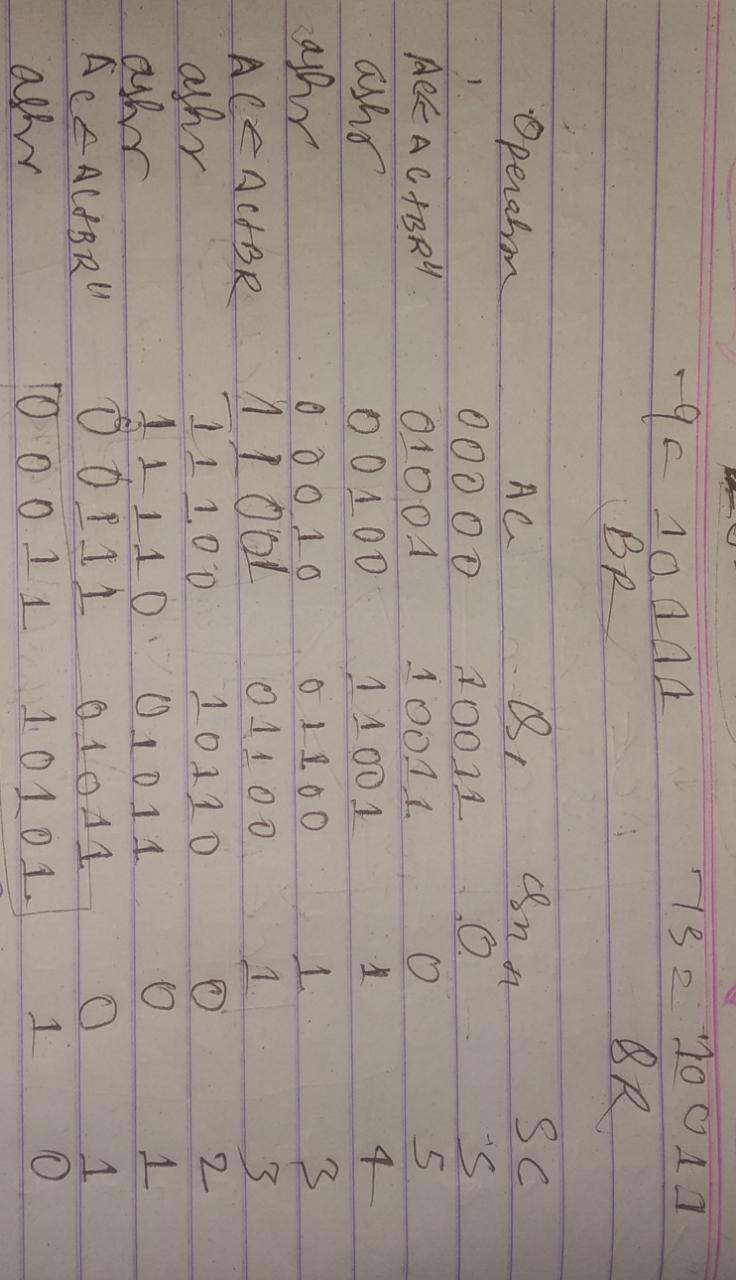 -9 = 10111 -13 = 10011
BR QR
Operation AC Q Qn+1 SC
00000 10011 0 5
AC ← AC+BR" 01001 10011 0 5
ashr 00100 11001 1 4
ashr 00010 01100 1 3
AC ← AC+BR 11001 01100 1 3
ashr 11100 10110 0 2
ashr 11110 01011 0 1
AC ← AC+BR" 00111 01011 0 1
ashr 00011 10101 1 0